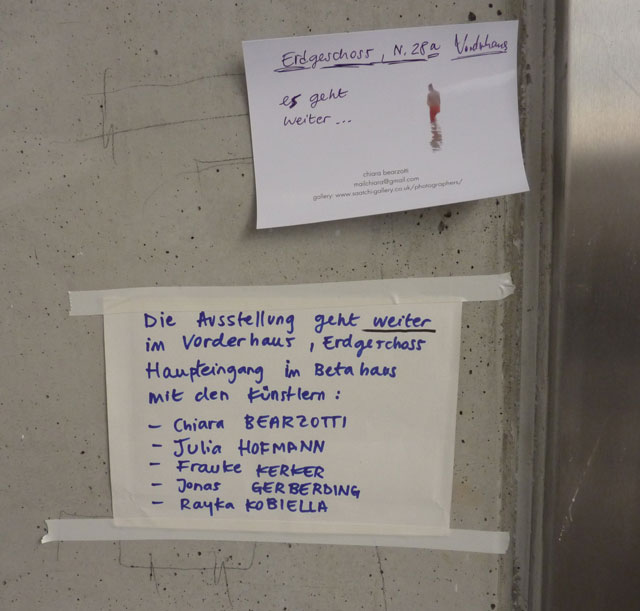 Erdgeschoss, N. 28a Vorderhaus
es geht
weiter...
chiara bearzotti
mailchiara@gmail.com
gallery: www.saatchi-gallery.co.uk/photographers/
Die Ausstellung geht weiter
im Vorderhaus, Erdgeschoss
Haupteingang im Betahaus
mit den Künstlern:
- Chiara BEARZOTTI
- Julia HOFMANN
- Frauke KERKER
- Jonas GERBERDING
- Rayka KOBIELLA